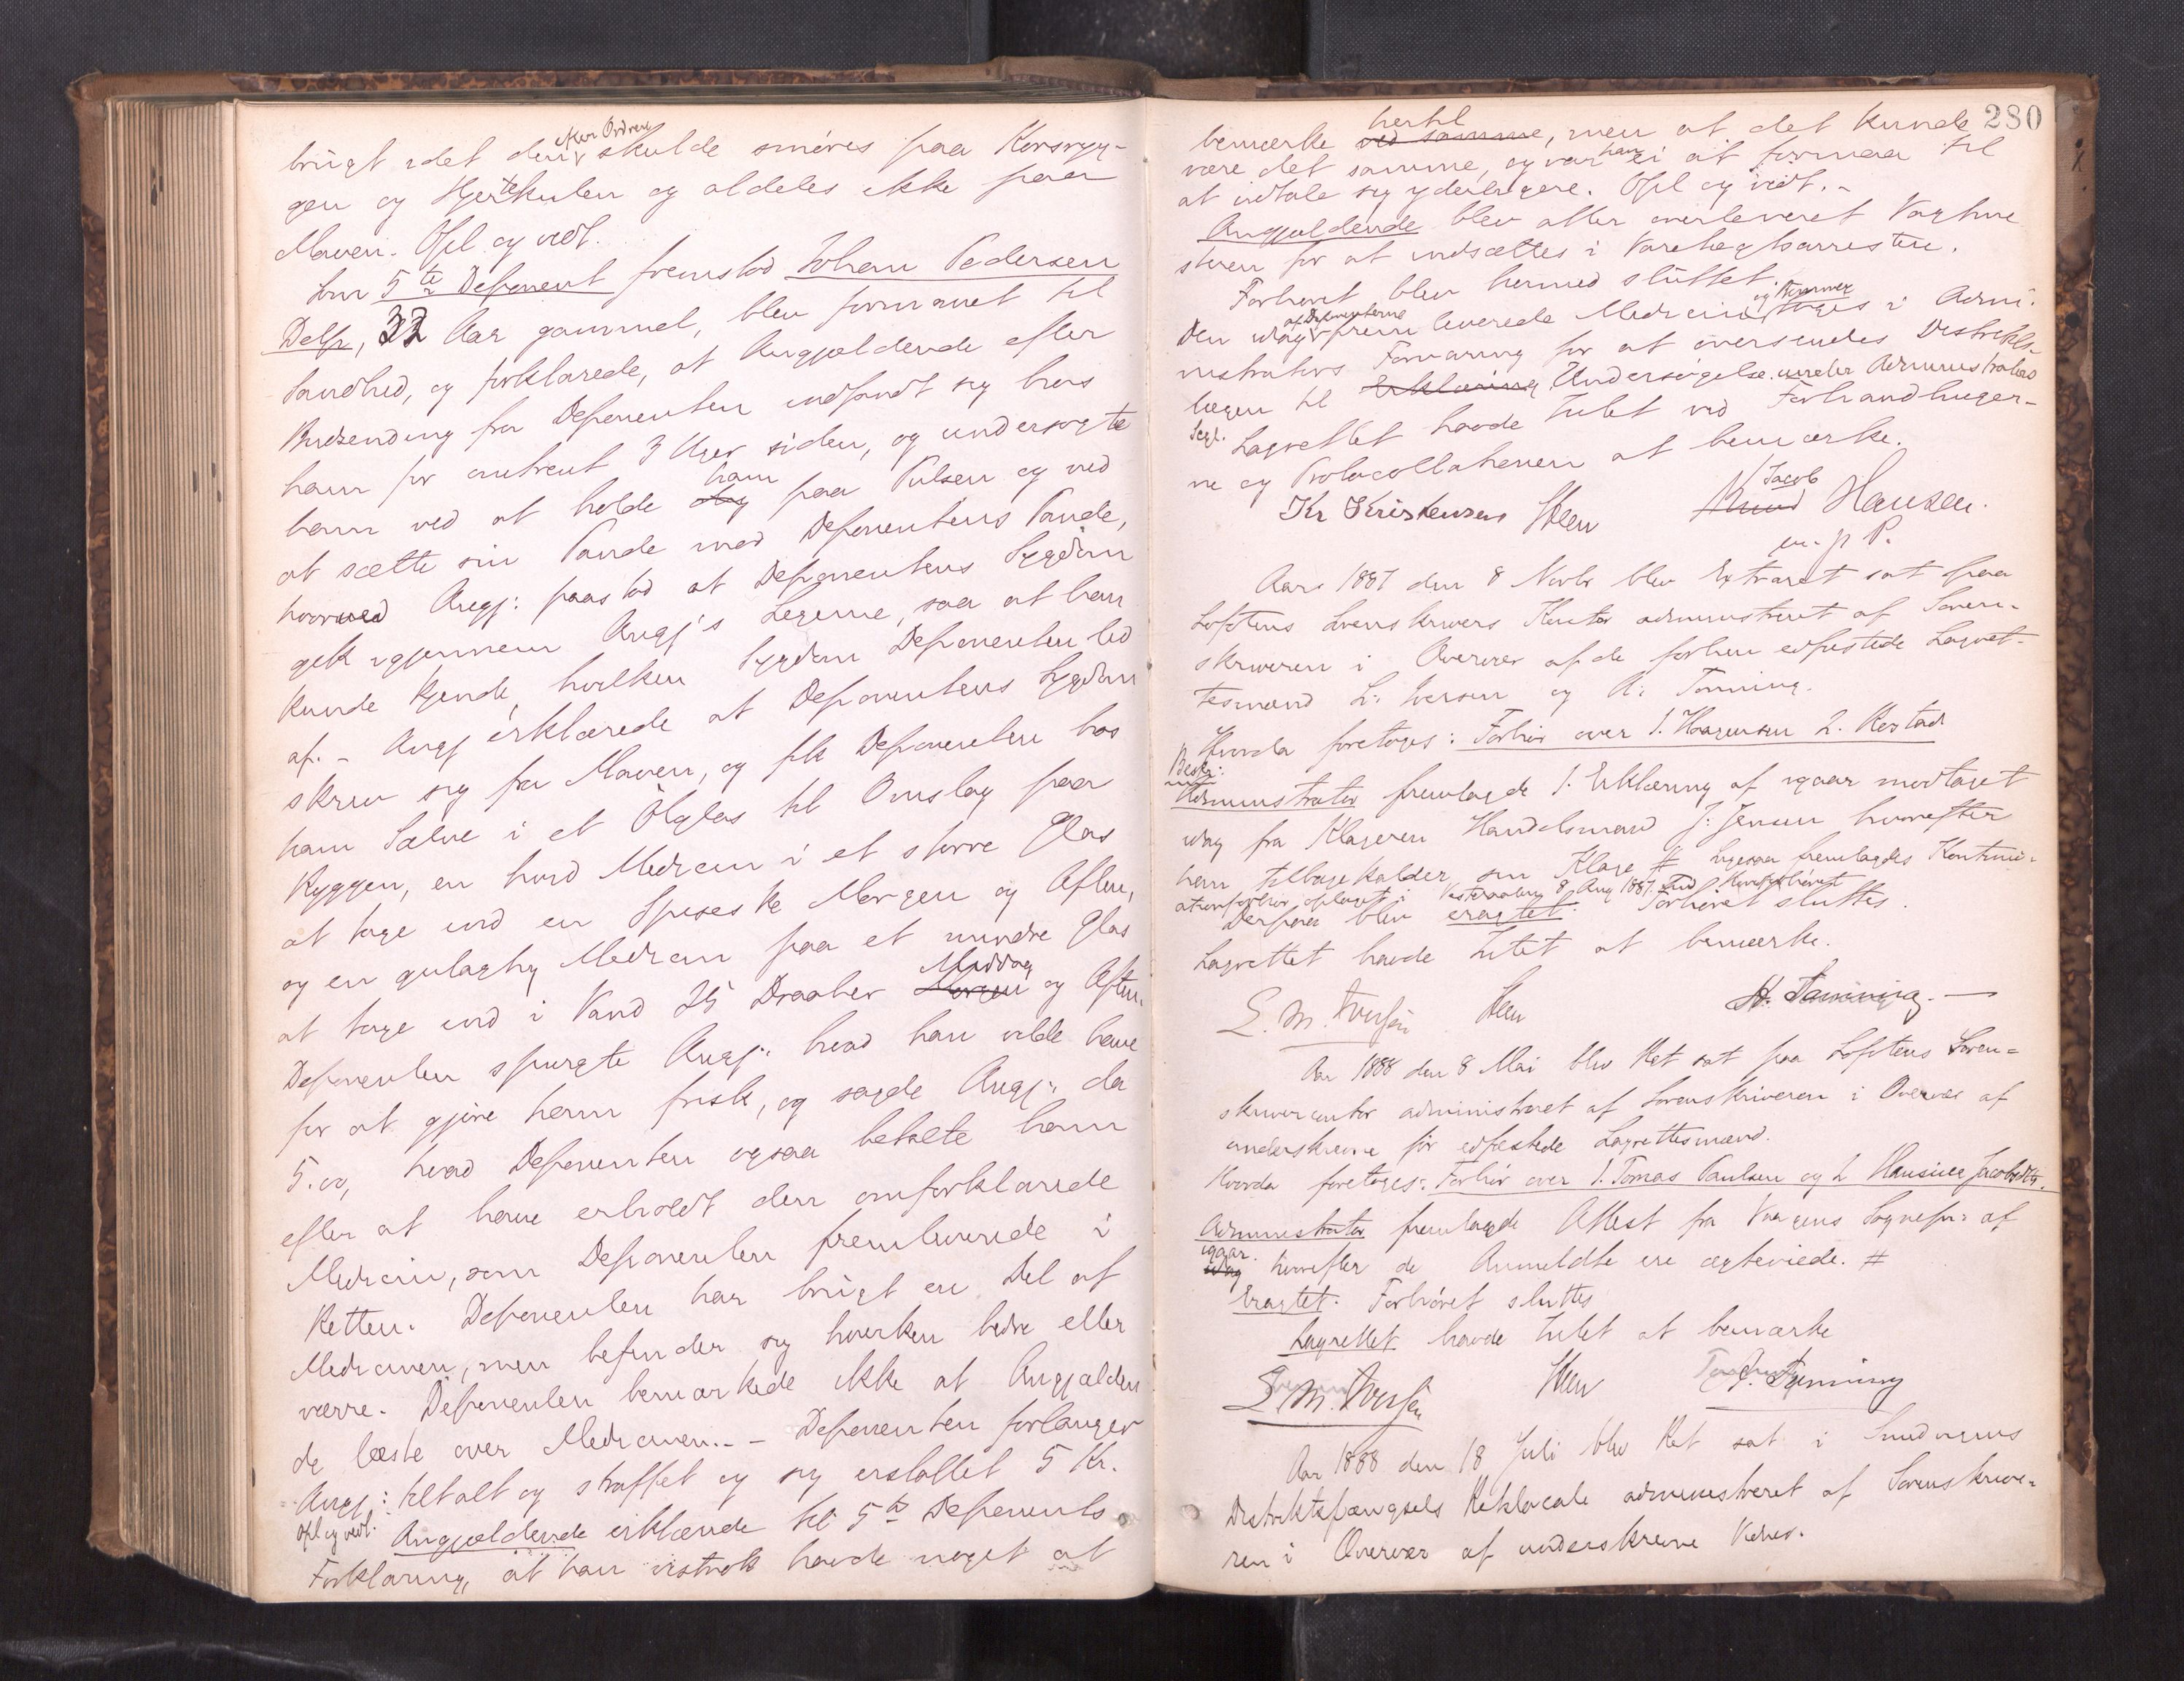 brugt idet den efter Ordren skulde smøres paa Korsryg-
gen og Hjertekulen og aldeles ikke paa
Maven. Opl og vedt.
Som 5te Deponent fremstod Johan Pedersen
Delp, 32 Aar gammel, blev formanet til
Sandhed, og forklarede, at Angjældende efter
Budsending fra Deponenten indfandt sig hos
ham for omtrent 3 Uger siden, og undersøgte
ham ved at holde ham paa Pulsen og ved
at sætte sin Pande mod Deponentens Pande,
hvorved Angj: paastod at Deponentens Sygdom
gik igjennem Angj's Legeme, saa at han
kunde kjende, hvilken Sygdom Deponenten led
af. - Angj erklærede at Deponentens Sygdom
skrev sig fra Maven, og fik Deponenten hos
ham Salve i et Ølglas til Omslag paa
Ryggen, en hvid Medicin i et større Glas
at tage ind en Speseske Morgen og Aften,
og en gulagtig Medicin paa et mindre Glas
at tage ind i Vand 25 Draaber Morgen Middag og Aften.
Deponenten spurgte Angj: hvad han vilde have
for at gjøre ham frisk, og sagde Angj: da
5.00, hvad Deponenten ogsaa betalte ham
efter at have erholdt den omforklarede
Medicin, som Deponenten fremleverede i
Retten. Deponenten har brugt en Del af
Medicinen, men befinder sig hverken bedre eller
værre. Deponenten bemærkede ikke at Angjælden
de læste over Medicinen. - Deponenten forlanger
Angj: tiltalt og straffet og sig erstattet 5 Kr.
Opl og vedt. Angjældende erklærede til 5te Deponents
Forklaring, at han vistnok havde noget at
280
bemærke ved samme hertil, men at det kunde
være det samme, og var han ei at formaa til
at udtale sig yderligere. Opl og vedt. -
Angjældende blev atter overleveret Vagtme
steren for at indsættes i Varetægtsarresten.
Forhøret blev hermed sluttet.
Den idag af Deponenterne fremleverede Medicin og Kommer toges i Admi-
nistrators Forvaring for at oversendes Distrikts-
lægen til Erklæring Undersøgelse under Administrators
Segl. Lagrettet havde Intet ved Forhandlinger-
ne og Protocollationen at bemærke.
Kr Kristensen Steen Knud Jacob Hansen.
m. p P.
Aar 1887 den 8 Novbr blev Extraret sat paa
Lofotens Sorenskrivers Kontor administreret af Soren-
skriveren i Overvær af de forhen edfæstede Lagret-
tesmænd L: Iversen og A: Tønning.
Hvorda foretoges: Forhør over 1. Haagensen 2. Kestad
Administrator fremlagde 1. Erklæring af igaar modtaget
idag fra Klageren Handelsmand J: Jensen hvorefter
han tilbagekalder sin Klage # ligesaa fremlagdes Kontinu-
ationsforhør optaget i Vesteraalen 8 Aug 1887
Derpaa blev eragtet: Forhøret sluttes.
Lagrettet havde Intet at bemærke.
L. M. Iversen Steen A. Tønning. -
Aar 1888 den 8 Mai blev Ret sat paa Lofotens Soren-
skrivercontor administreret af Sorenskriveren i Overvær af
underskrevne før edfæstede Lagrettesmænd.
Hvorda foretoges: Forhør over 1. Tomas Paulsen og 2 Hansine Jacobsdtr.
Administrator fremlagde Attest fra Vaagens Sognepr: af
idag igaar hvorefter de Anmeldte ere ægteviede. #
Eragtet: Forhøret sluttes
Lagrettet havde Intet at bemærke
L. M. Iversen Steen A. Tønning
Aar 1888 den 18 Juli blev Ret sat i
Distriktsfængsels Retslocale administreret af Sorenskrive-
ren i Overvær af underskrevne Vidner.